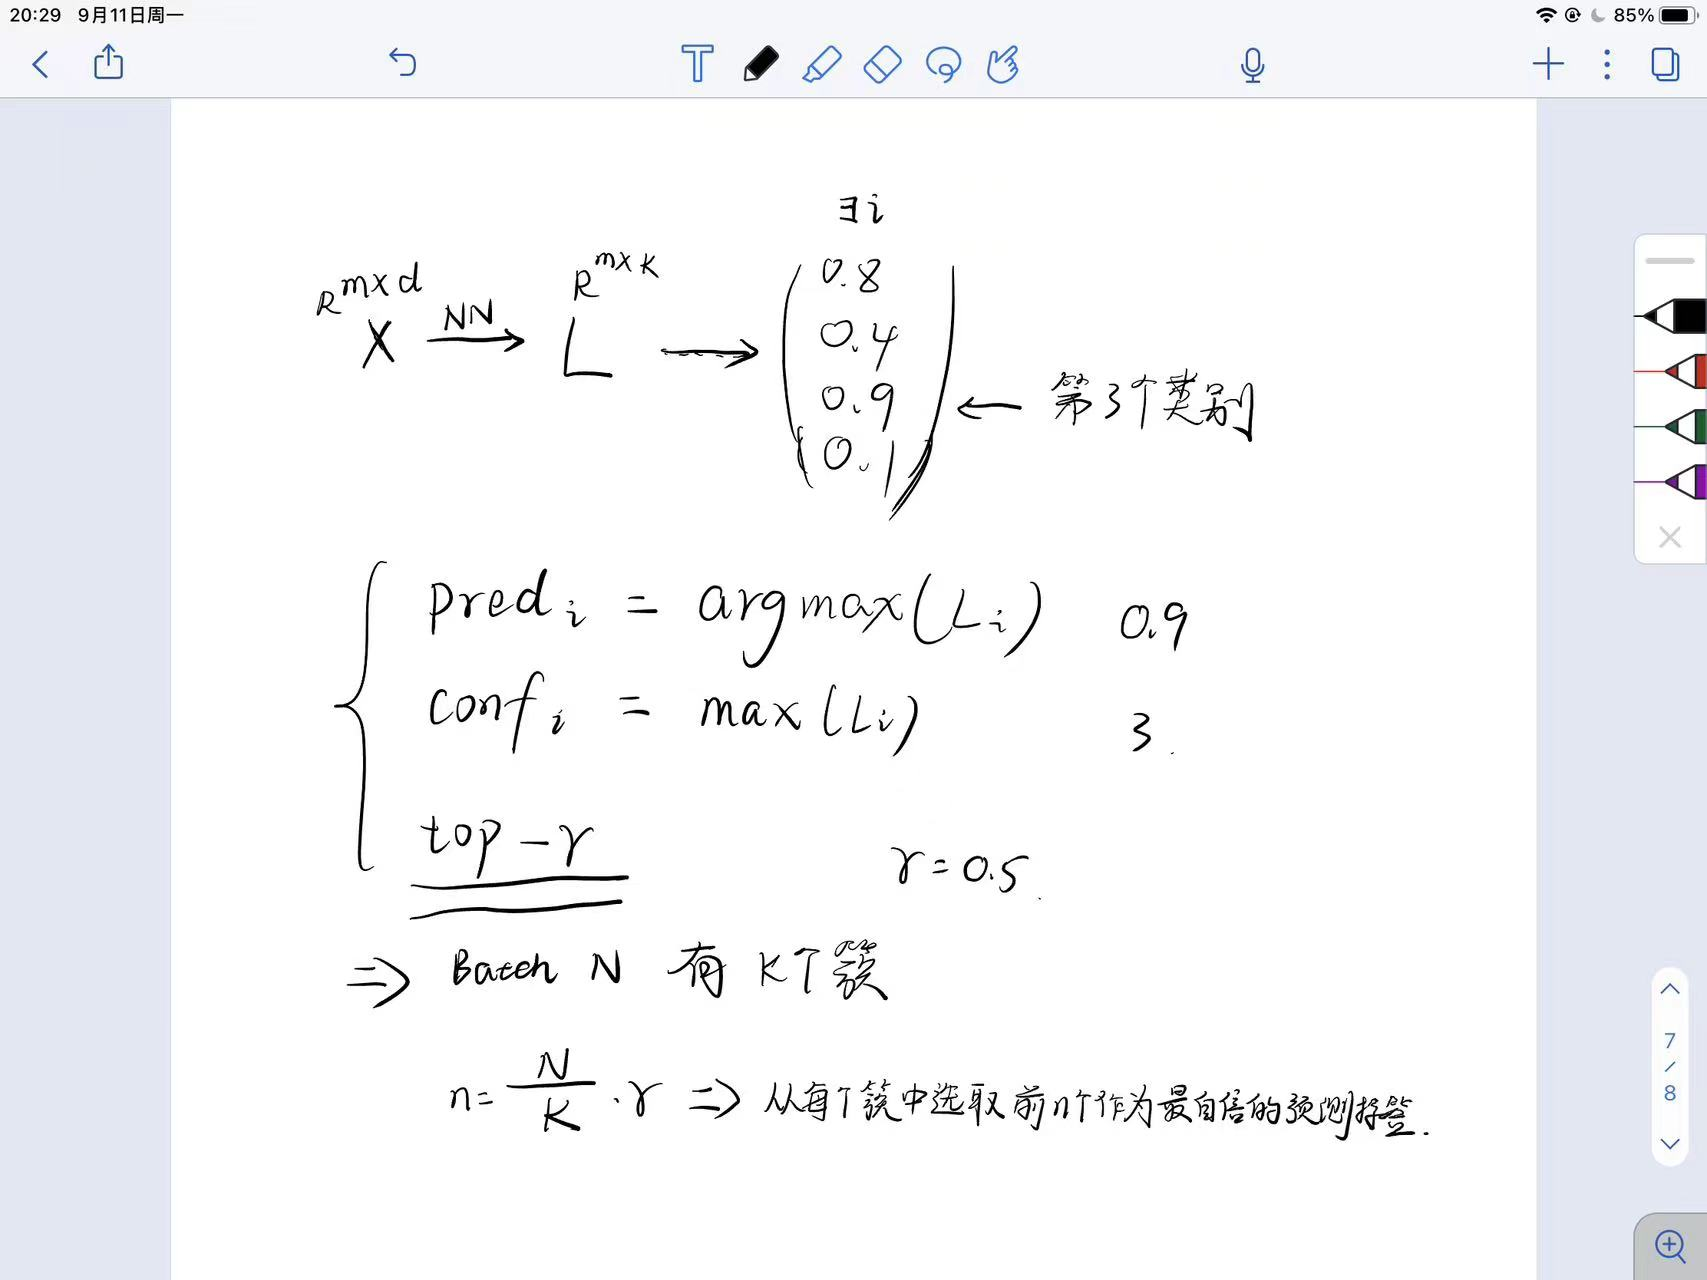 20:29 9月11日周一
85%
∃i
R^{m×d} R^{m×K} 0.8
X NN→ L → 0.4
0.9 ← 第3个类别
0.1
pred_i = argmax(L_i) 0.9
conf_i = max(L_i) 3.
top-γ γ=0.5.
⇒ Batch N 有 K个簇
n= N/K ·γ ⇒ 从每个簇中选取前n个作为最自信的预测标签.
7/8